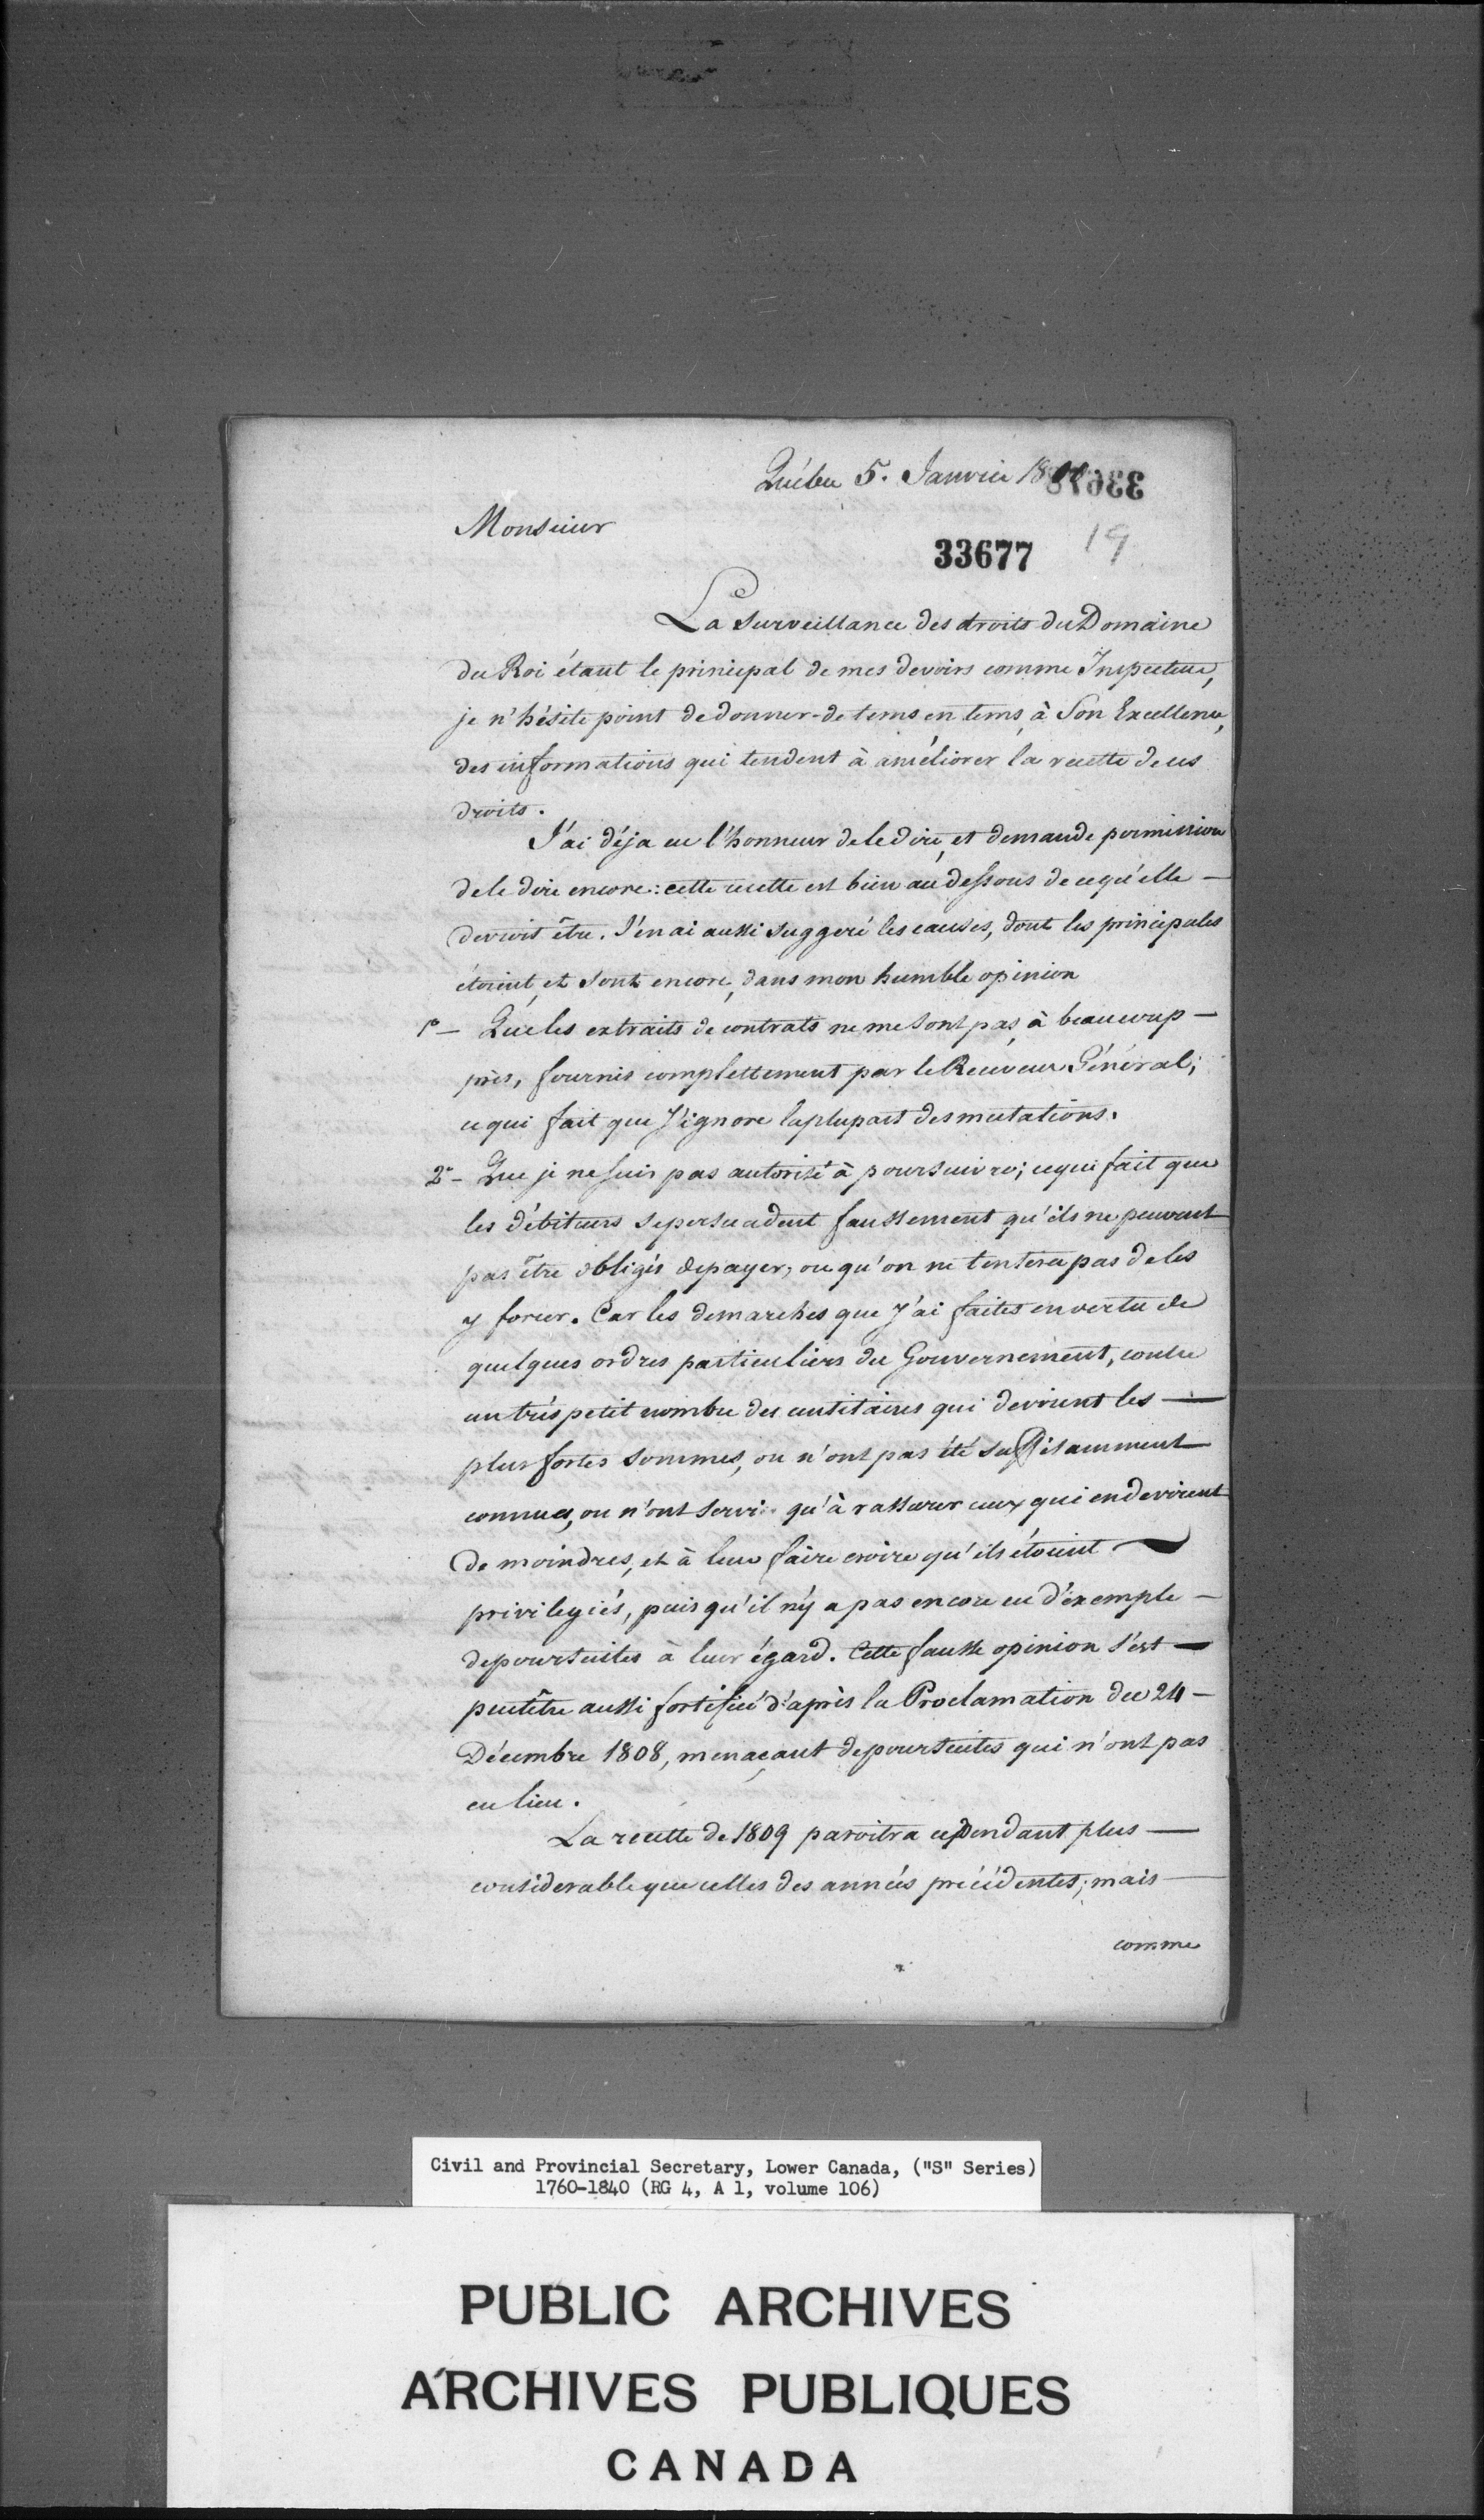 Québec 5. Janvier 18
33678
Monsieur
33677 19
La surveillance des droits du Domaine
du Roi étant le principal de mes devoirs comme Inspecteur,
je n'hésite point de donner de tems en tems, à Son Excellence,
des informations qui tendent à améliorer la recette de ces
droits.
J'ai déja eu l'honneur de le dire, et demande permission
de le dire encore: cette recette est bien au dessous de ce qu'elle —
devroit être. J'en ai aussi suggeré les causes, dont les principales
étoient, et sont encore, dans mon humble opinion
1º — Que les extraits de contrats ne me sont pas, à beaucoup —
près, fournis complettement par le Receveur Général;
ce qui fait que J'ignore la plupart des mutations.
2º — Que je ne suis pas autorisé à poursuivre; ce qui fait que
les débiteurs se persuadent faussement qu'ils ne peuvent
pas être obligés de payer, ou qu'on ne tentera pas de les
y forcer. Car les demarches que J'ai faites en vertu de
quelques ordres particuliers du Gouvernement, contre
un très petit nombre des censitaires qui devoient les —
plus fortes sommes, ou n'ont pas été suffisamment
connues, ou n'ont servi qu'à rassurer ceux qui en devoient
de moindres, et à leur faire croire qu'ils étoient —
privilegiés, puis qu'il n'y a pas encore eu d'éxemple —
de poursuites à leur égard. Cette fausse opinion s'est —
peutêtre aussi fortifiée d'après la Proclamation du 24 —
Décembre 1808, menaçant de poursuites qui n'ont pas
eu lieu.
La recette de 1809 paroitra cependant plus —
considerable que celles des années précédentes; mais —
comme
Civil and Provincial Secretary, Lower Canada, ("S" Series)
1760-1840 (RG 4, A 1, volume 106)
PUBLIC ARCHIVES
ARCHIVES PUBLIQUES
CANADA